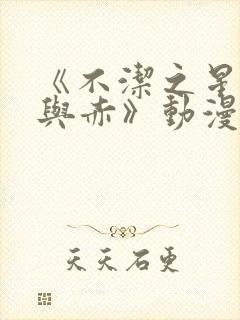 《不潔之星
與赤》動漫
天天石更